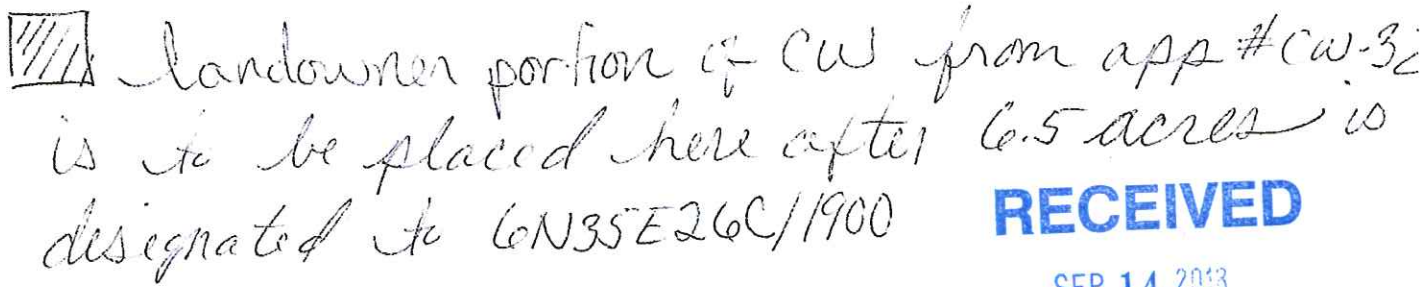 landowner portion of CW from app #CW-32
is to be placed here after 6.5 acres is
designated to 6N35E26C/1900
RECEIVED
SEP 14 2018